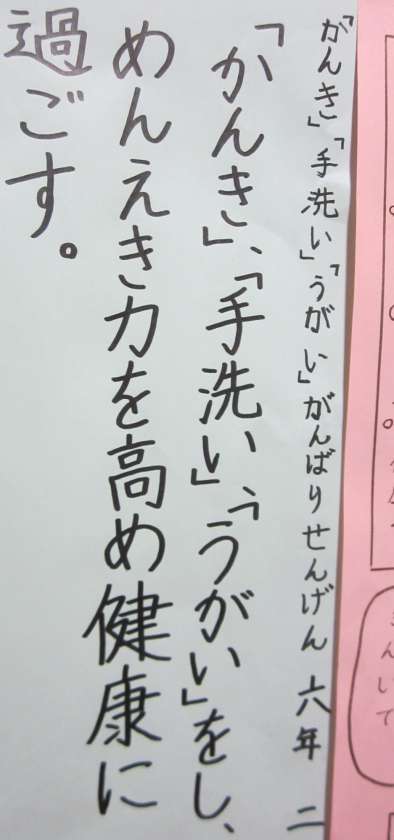 「がんき」「手洗い」「うがい」がんばりせんげん 六年 二
「かんき」、「手洗い」、「うがい」をし、
めんえき力を高め健康に
過ごす。
きんいて